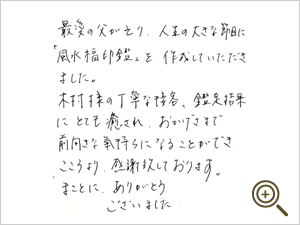 最愛の父がえり、人生の大きな節目に
「風水福印鑑」を作成していただき
ました。
木村様の丁寧な接客、鑑定結果
にとても癒され、おかげさまで
前向きな気持ちになることができ、
こころより、感謝致しております。
まことに、ありがとう
ございました